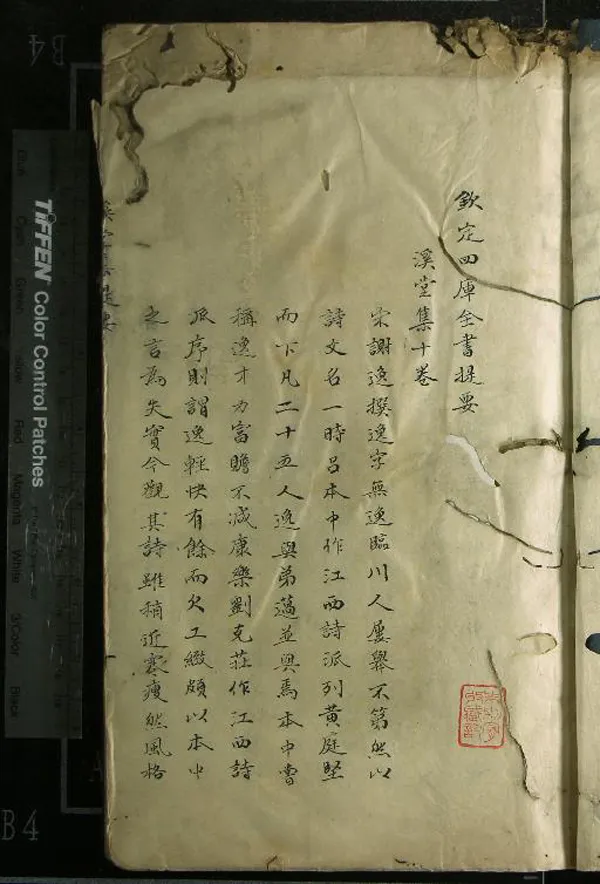 欽定四庫全書提要
溪堂集十卷
宋謝逸撰逸字無逸臨川人屢舉不第然以
詩文名一時呂本中作江西詩派列黃庭堅
而下凡二十五人逸與弟薖並與焉本中嘗
稱逸才力富贍不减康樂劉克莊作江西詩
派序則謂逸輕快有餘而欠工緻頗以本中
之言為失實今觀其詩雖稍近寒瘦然風格
TIFFEN Color Control Patches
Cyan Green Red Magenta White 3/Color Black
B4
B4